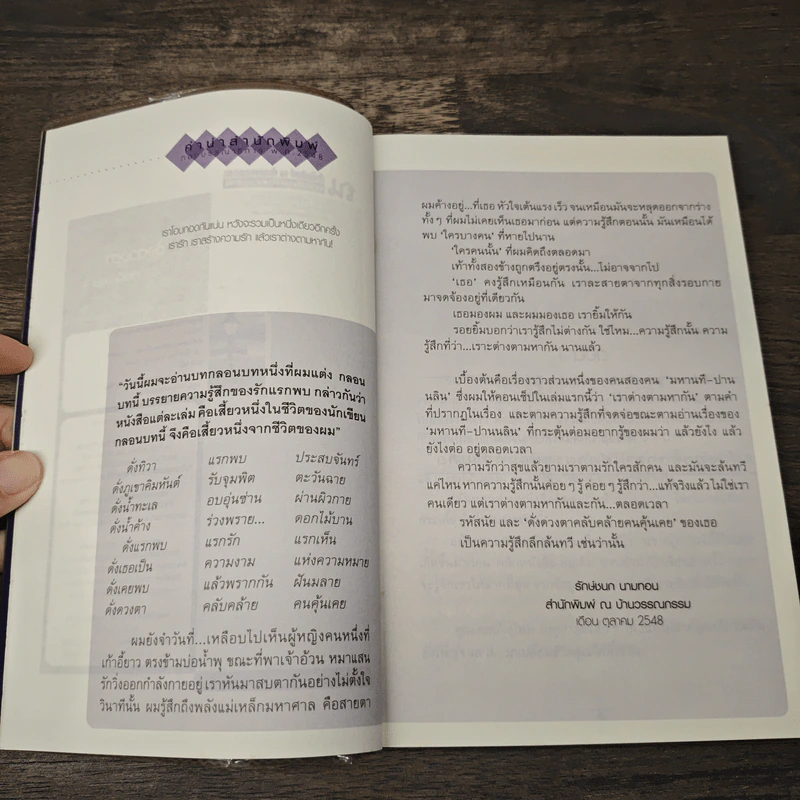 คำนำสำนักพิมพ์
เราโอบกอดกันแน่น หวังจะรวมเป็นหนึ่งเดียวอีกครั้ง
เรารัก เราสร้างความรัก แล้วเราต่างตามหากัน!
"วันนี้ผมจะอ่านบทกลอนบทหนึ่งที่ผมแต่ง กลอน
บทนี้ บรรยายความรู้สึกของรักแรกพบ กล่าวกันว่า
หนังสือแต่ละเล่ม คือเสี้ยวหนึ่งในชีวิตของนักเขียน
กลอนบทนี้ จึงคือเสี้ยวหนึ่งจากชีวิตของผม"
ดั่งทิวา แรกพบ ประสบจันทร์
ดั่งภูเขาคิมหันต์ รับจุมพิต ตะวันฉาย
ดั่งน้ำทะเล อบอุ่นซ่าน ผ่านผิวกาย
ดั่งน้ำค้าง ร่วงพราย... ดอกไม้บาน
ดั่งแรกพบ แรกรัก แรกเห็น
ดั่งเธอเป็น ความงาม แห่งความหมาย
ดั่งเคยพบ แล้วพรากกัน ฝันมลาย
ดั่งดวงตา คลับคล้าย คนคุ้นเคย
ผมยังจำวันที่...เหลือบไปเห็นผู้หญิงคนหนึ่งที่
เก้าอี้ยาว ตรงข้ามบ่อน้ำพุ ขณะที่พาเจ้าอ้วน หมาแสน
รักวิ่งออกกำลังกายอยู่ เราหันมาสบตากันอย่างไม่ตั้งใจ
วินาทีนั้น ผมรู้สึกถึงพลังแม่เหล็กมหาศาล คือสายตา
ผมค้างอยู่...ที่เธอ หัวใจเต้นแรง เร็ว จนเหมือนมันจะหลุดออกจากร่าง
ทั้งๆ ที่ผมไม่เคยเห็นเธอมาก่อน แต่ความรู้สึกตอนนั้น มันเหมือนได้
พบ 'ใครบางคน' ที่หายไปนาน
'ใครคนนั้น' ที่ผมคิดถึงตลอดมา
เท้าทั้งสองข้างถูกตรึงอยู่ตรงนั้น...ไม่อาจจากไป
'เธอ' คงรู้สึกเหมือนกัน เราละสายตาจากทุกสิ่งรอบกาย
มาจดจ้องอยู่ที่เดียวกัน
เธอมองผม และผมมองเธอ เรายิ้มให้กัน
รอยยิ้มบอกว่าเรารู้สึกไม่ต่างกัน ใช่ไหม...ความรู้สึกนั้น ความ
รู้สึกที่ว่า...เราะต่างตามหากัน นานแล้ว
เบื้องต้นคือเรื่องราวส่วนหนึ่งของคนสองคน 'มหานที-ปาน
นลิน' ซึ่งผมให้คอนเซ็ปในเล่มแรกนี้ว่า 'เราต่างตามหากัน' ตามคำ
ที่ปรากฏในเรื่อง และตามความรู้สึกที่จดจ่อขณะตามอ่านเรื่องของ
'มหานที-ปานนลิน' ที่กระตุ้นต่อมอยากรู้ของผมว่า แล้วยังไง แล้ว
ยังไงต่อ อยู่ตลอดเวลา
ความรักว่าสุขแล้วยามเราตามรักใครสักคน และมันจะล้นทวี
แค่ไหน หากความรู้สึกนั้นค่อยๆ รู้ ค่อยๆ รู้สึกว่า...แท้จริงแล้ว ไม่ใช่เรา
คนเดียว แต่เราต่างตามหากันและกัน...ตลอดเวลา
รหัสนัย และ 'ดั่งดวงตาคลับคล้ายคนคุ้นเคย' ของเธอ
เป็นความรู้สึกลึกล้นทวี เช่นว่านั้น
รักษ์ชนก นามทอน
สำนักพิมพ์ ณ บ้านวรรณกรรม
เดือน ตุลาคม 2548